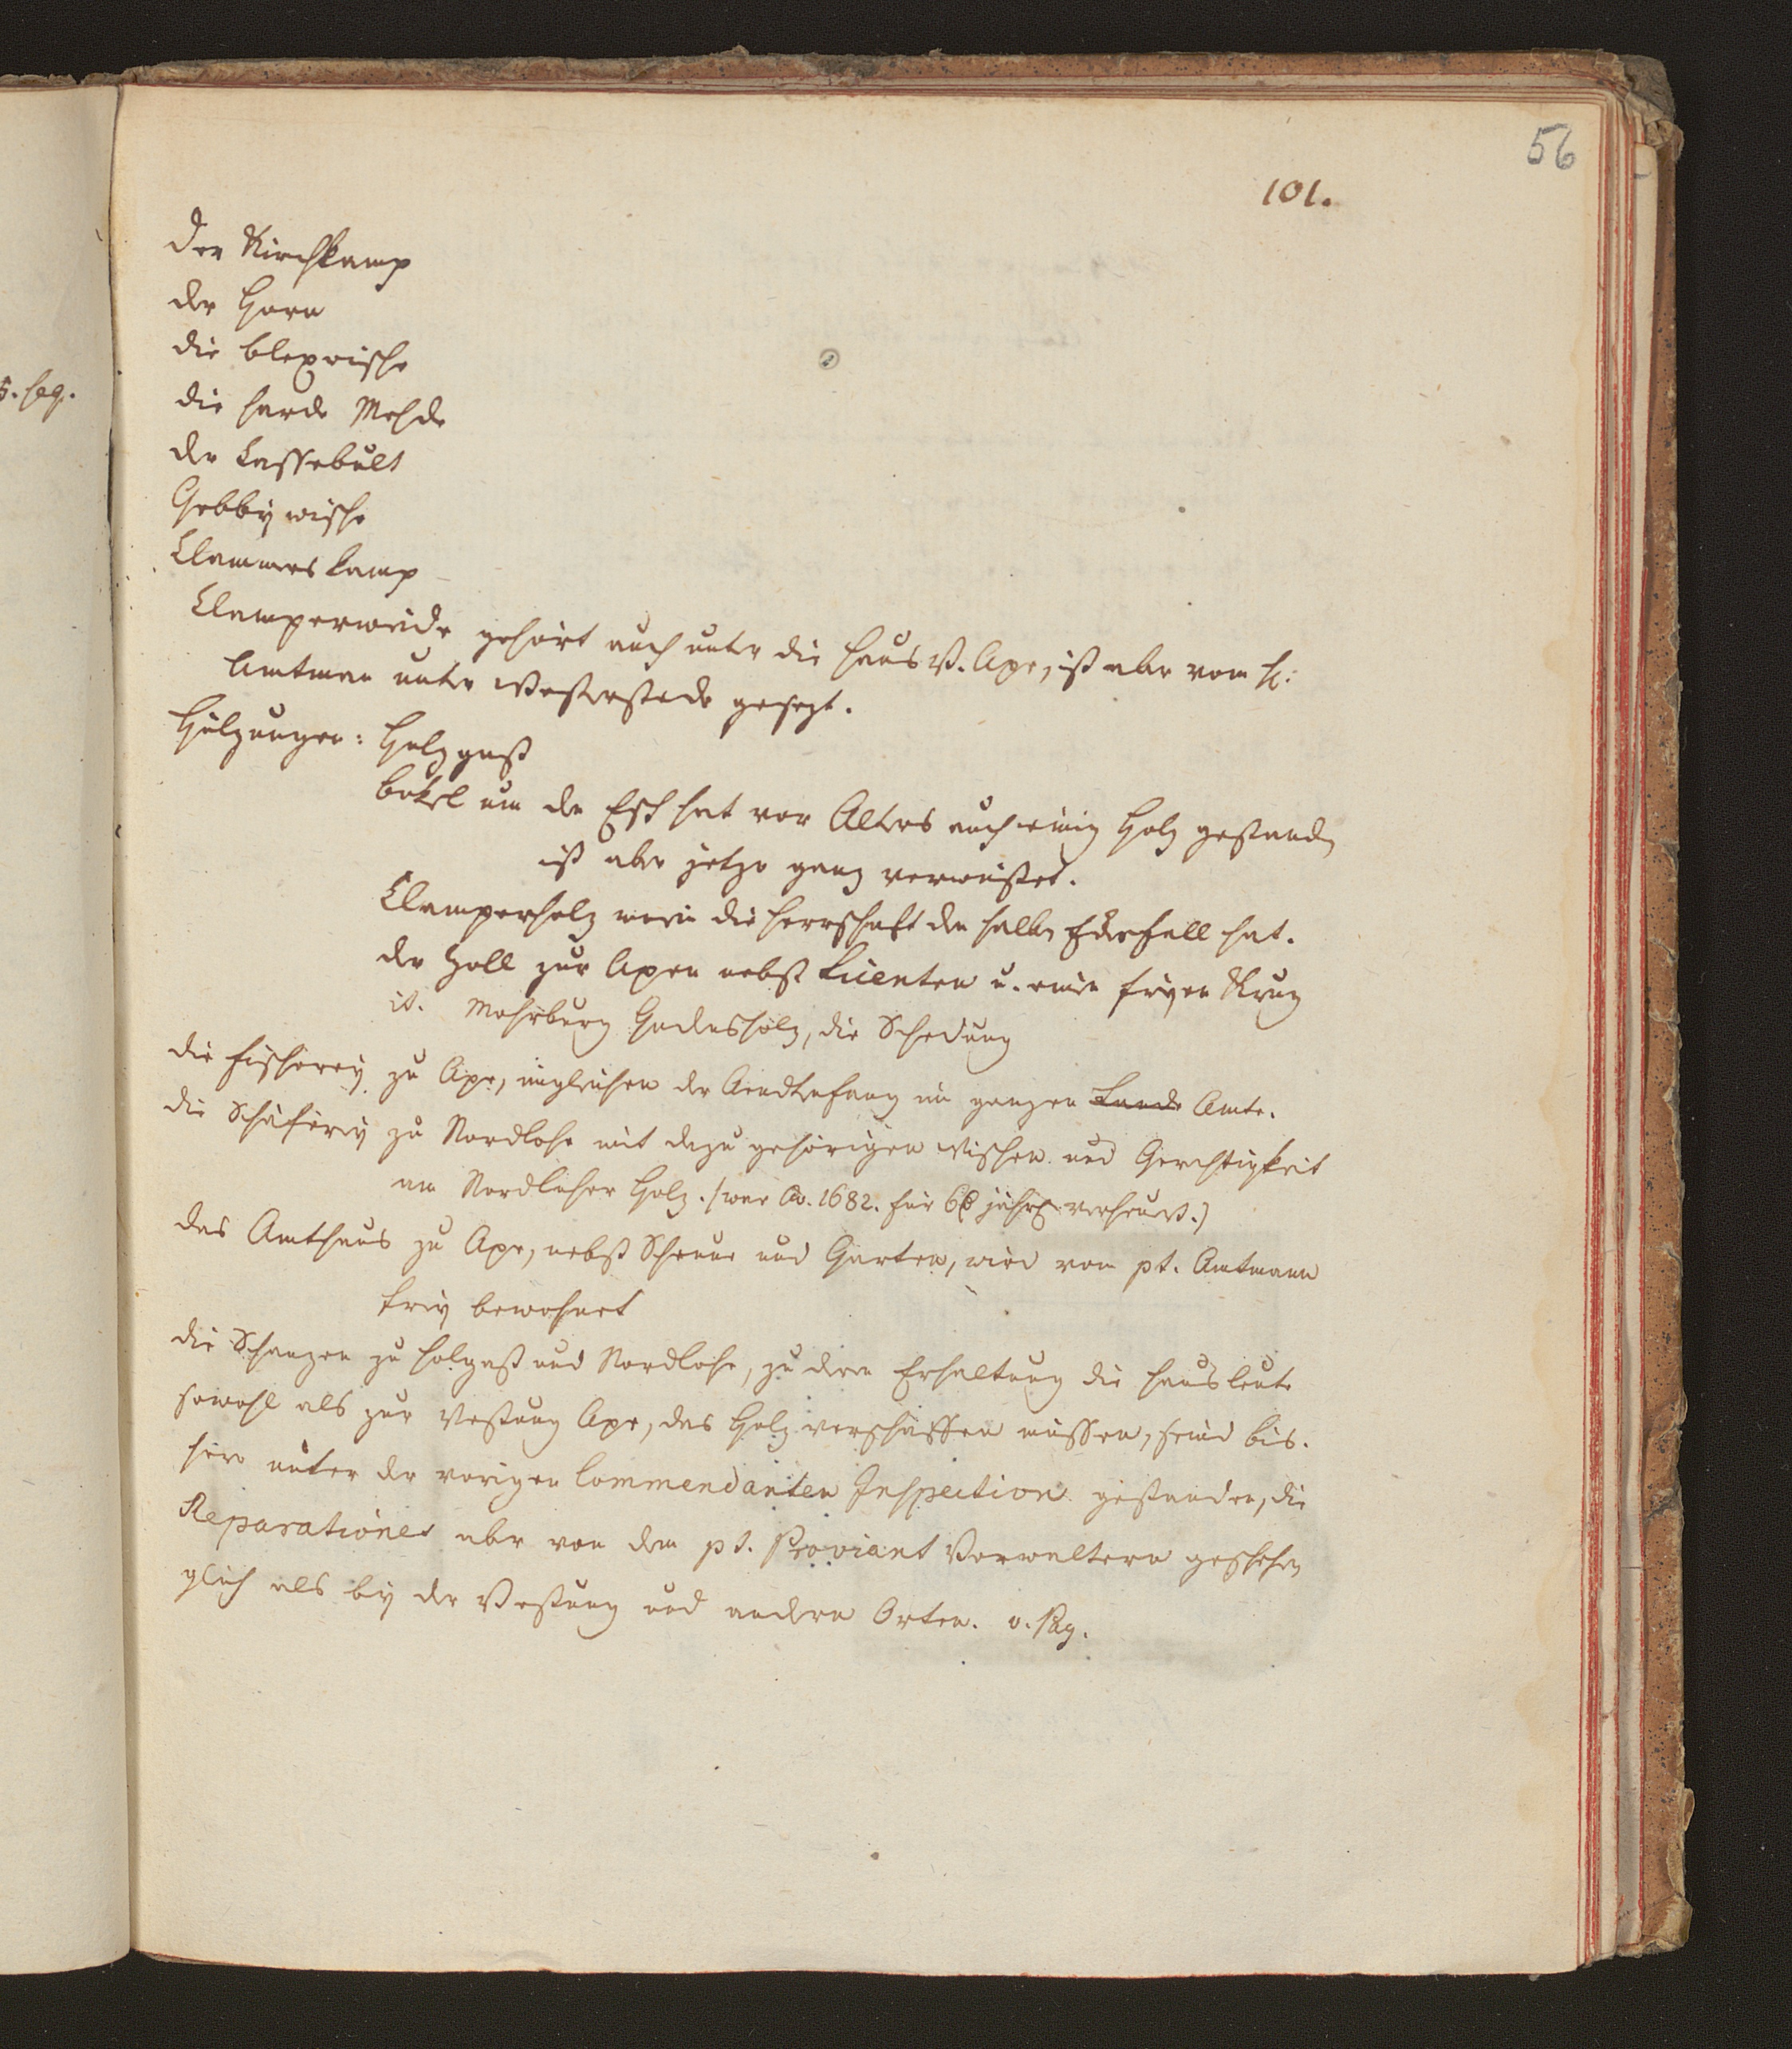 56
101.
5. seq.
Der Kirchkamp
der Horn
die blexwische
die harde Mehde
der Cassebült
Gebbÿ wische
Clammers kamp
Clamperweide gehört auch unter die Haus V. Ape, ist aber vom H:
Amtman unter Westerstede gesezt.
Hülzungen: Holzgast
Bokel um den Esch hat vor Alters auch einig Holz gestanden
ist aber jetzo ganz verwüstet.
Clamperholz worin die Herrschaft den halben fall hat.
der Zoll zur Apen nebst Licenten u. einen freyen Krug
it. Mohrburg Godesholz, die Schedung
die fischereÿ zu Ape, imgleichen der Aendtenfang im ganzen Lande Amte.
die Schäfereÿ zu Nordlohe mit dazu gehörigen Wischen und Gerechtigkeit
am Nordloher Holz. (war Ao. 1682. für 6 jährl. verheuert.)
das Amthaus zu Ape, nebst Scheune und Garten, wird vom pt. Amtmann
freÿ bewohnet
die Schanzen zu Holgast und Nordlohe, zu deren Erhaltung die Hausleute
sowohl als zur Vestung Ape, das Holz verschaffen müssen, seind bis.
hero unter der vorigen Commendanten Inspection gestanden, die
Reparationes aber von dem pt. Proviant Verwaltern geschehen
gleich als beÿ der Vestung und andern Orten. v. Pag.